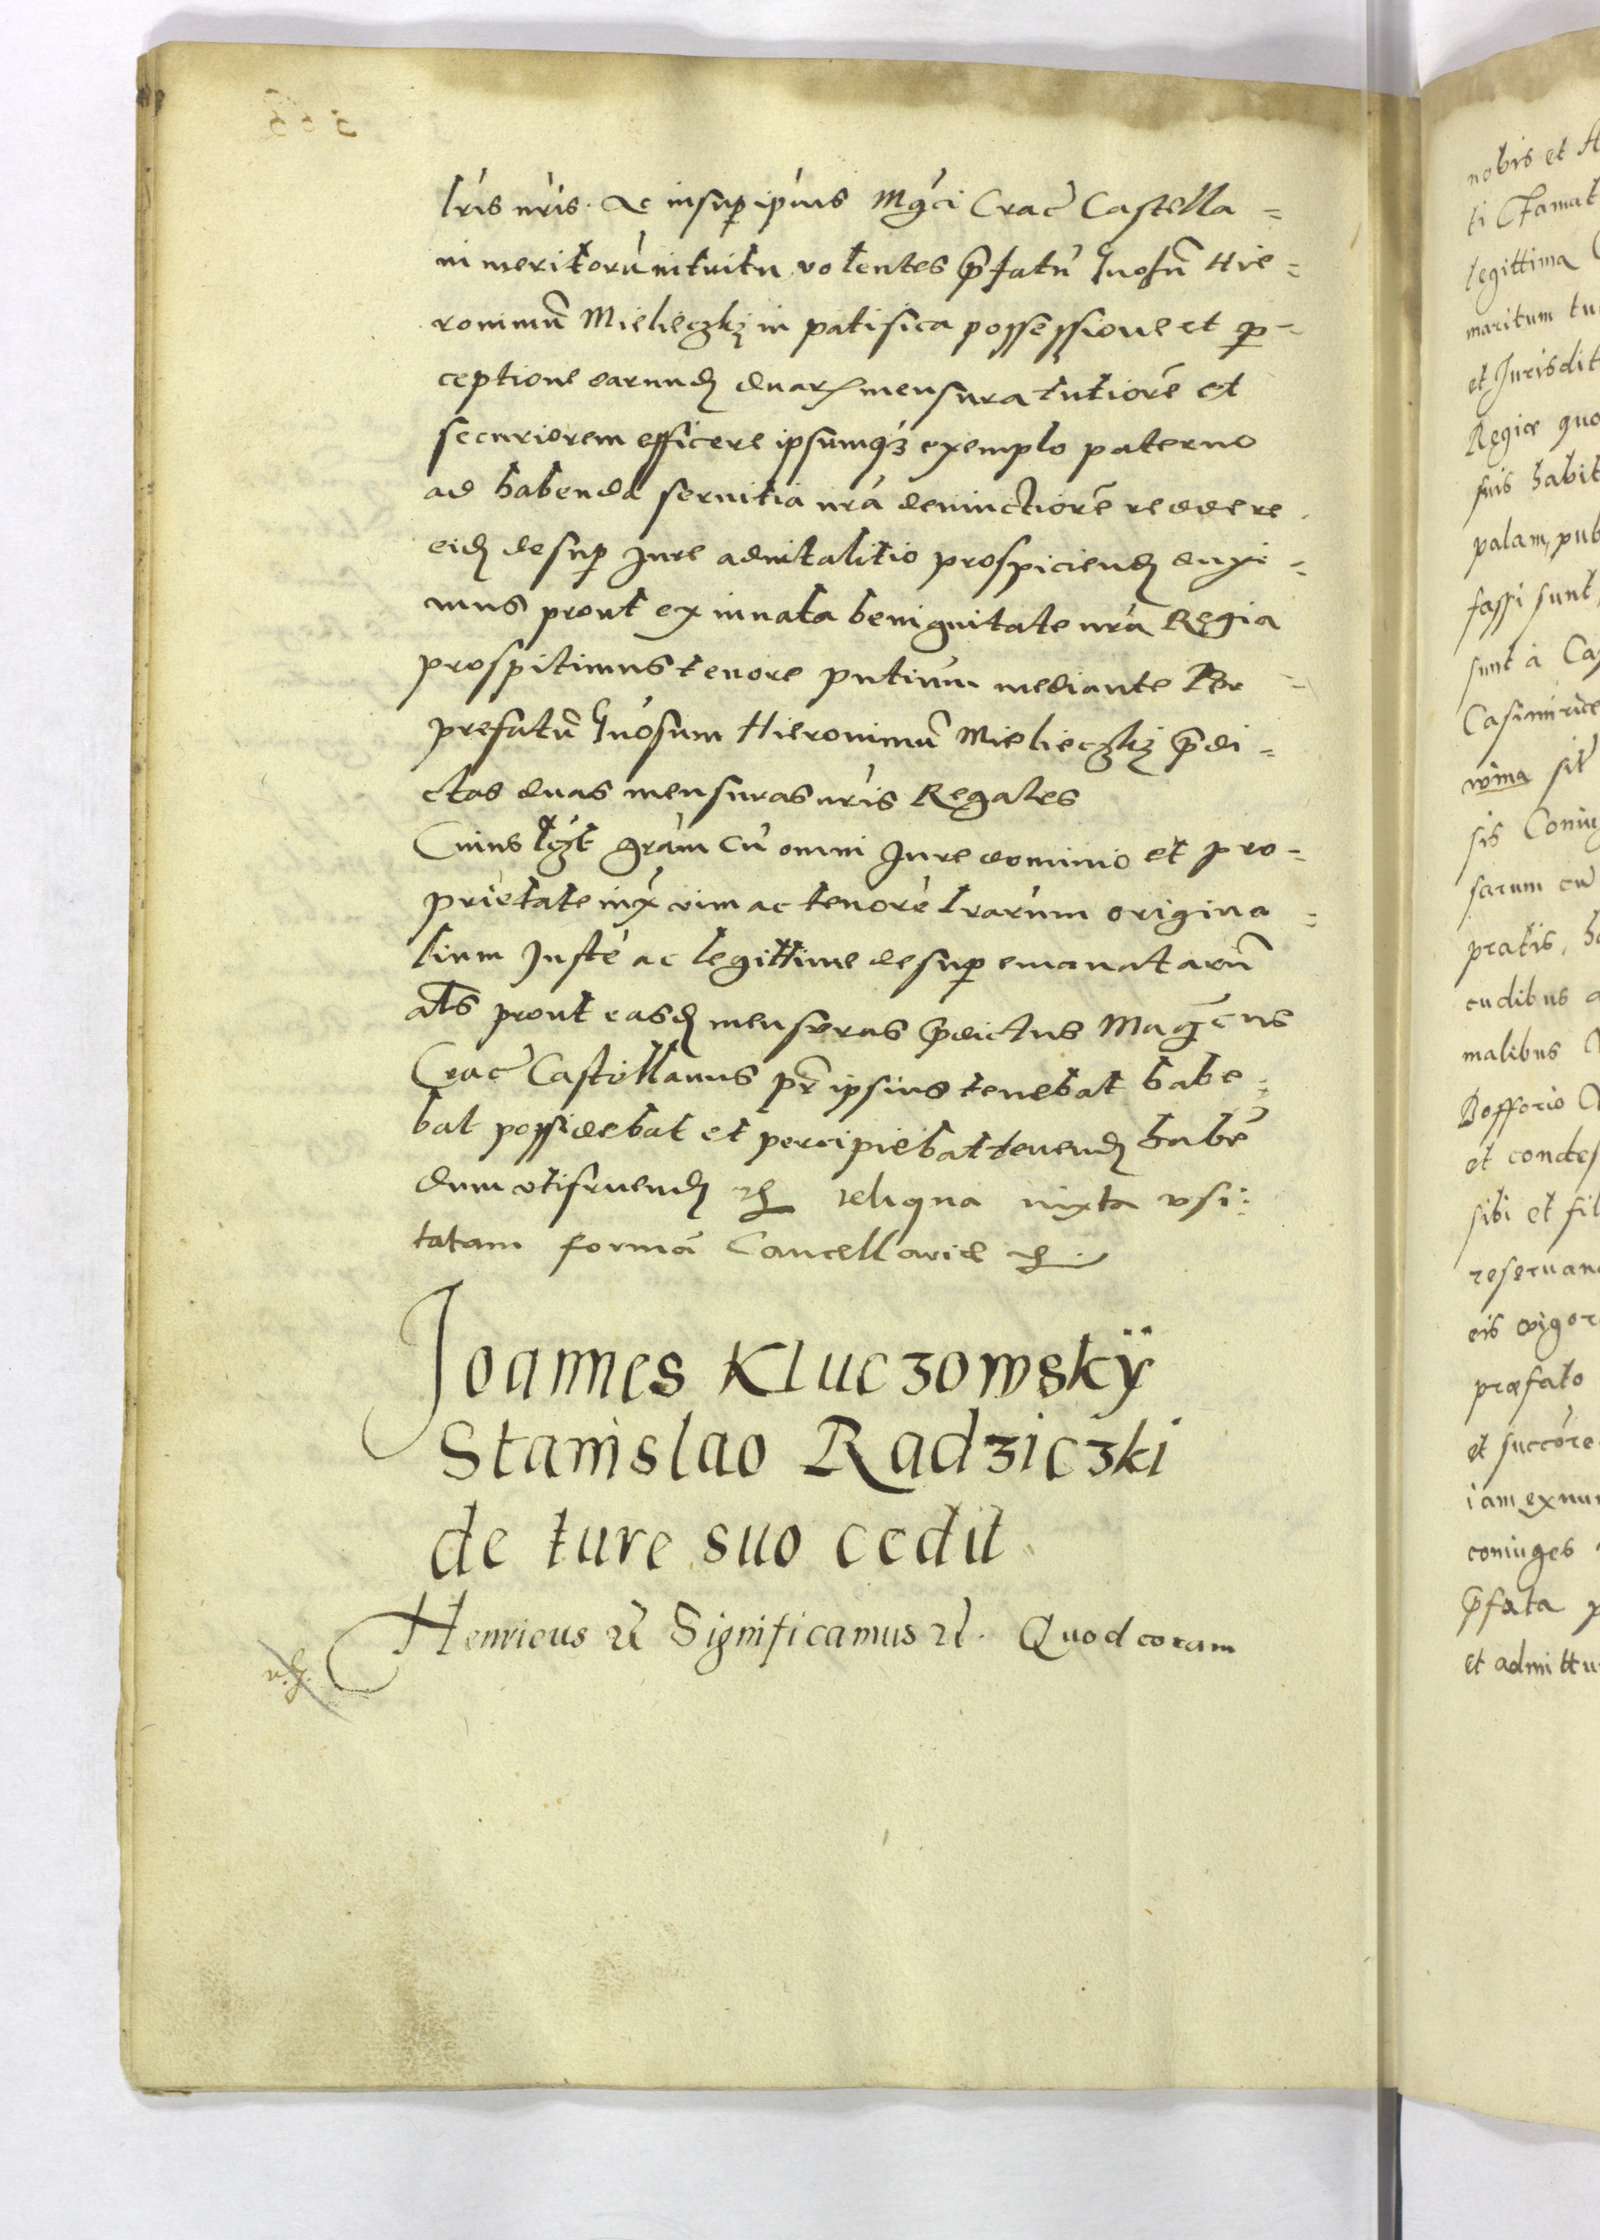 lris nris. Ac insup ipius Mgci Crac Castella=
ni meritoru intuitu volentes pfatu Gnosu Hie=
ronimu Mieliczki in patifica possessione et p=
ceptione earund duar mensura tutiore et
securiorem efficere ipsumq exemplo paterno
ad habenda servitia nra devinctiore reddere
eid desup Jure advitalitio prospiciend duxi=
mus prout ex innata benignitate nra Regia
prospitimus tenore pntium mediante Per
prefatu Gnosum Hieronimu Mielieczki pdi=
ctas duas mensuras nris Regales
Cuius gram cu omni Jure dominio et pro=
prietate inx vim ac tenore lrarum origina=
lium Juste ac legittime desup emanataru
als prout easd mensuras pdictus Magcus
Crac Castellanus pr ipsius tenebat habe=
bat possidebat et percipiebat tenend habe
dum utifruend etc reliqua iuxta usi:
tatam forma Cancellariae etc.
Joannes Kluczowskÿ
Stanislao Radziczki
de iure suo cedit
Henricus etc Significamus etc. Quod coram
nobis et
ti
legittima
maritum
et Jurisdit
Regice quo
suis habit
palam, pub
fassi sunt,
sunt à
Casimirice
sit
sis Coniu
sarum cu
pratis,
cudibus
malibus
et
sibi et fil
reservan
eis vigor
præfato
et succore
iam exnun
coniuges
pfata
et admittu